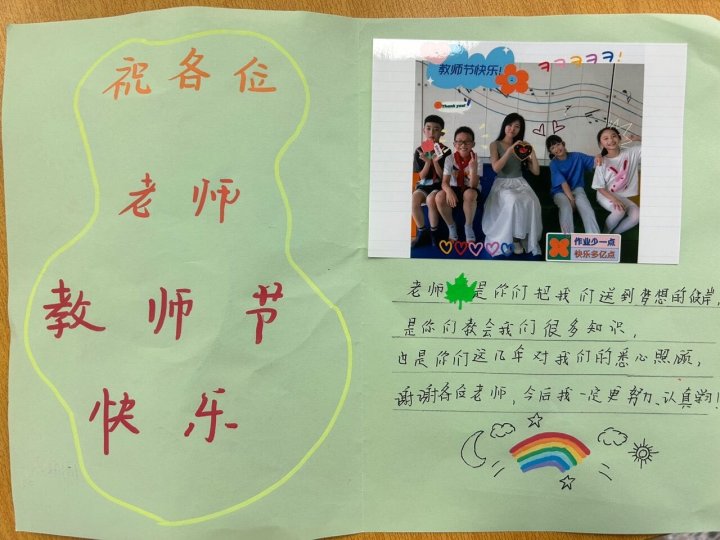 祝各位
老师
教师节
快乐
教师节快乐!
Thank you!
作业少一点
快乐多亿点
老师 是你们把我们送到梦想的彼岸
是你们教会我们很多知识,
也是你们这几年对我们的悉心照顾,
谢谢各位老师,今后我一定更努力、认真学习!